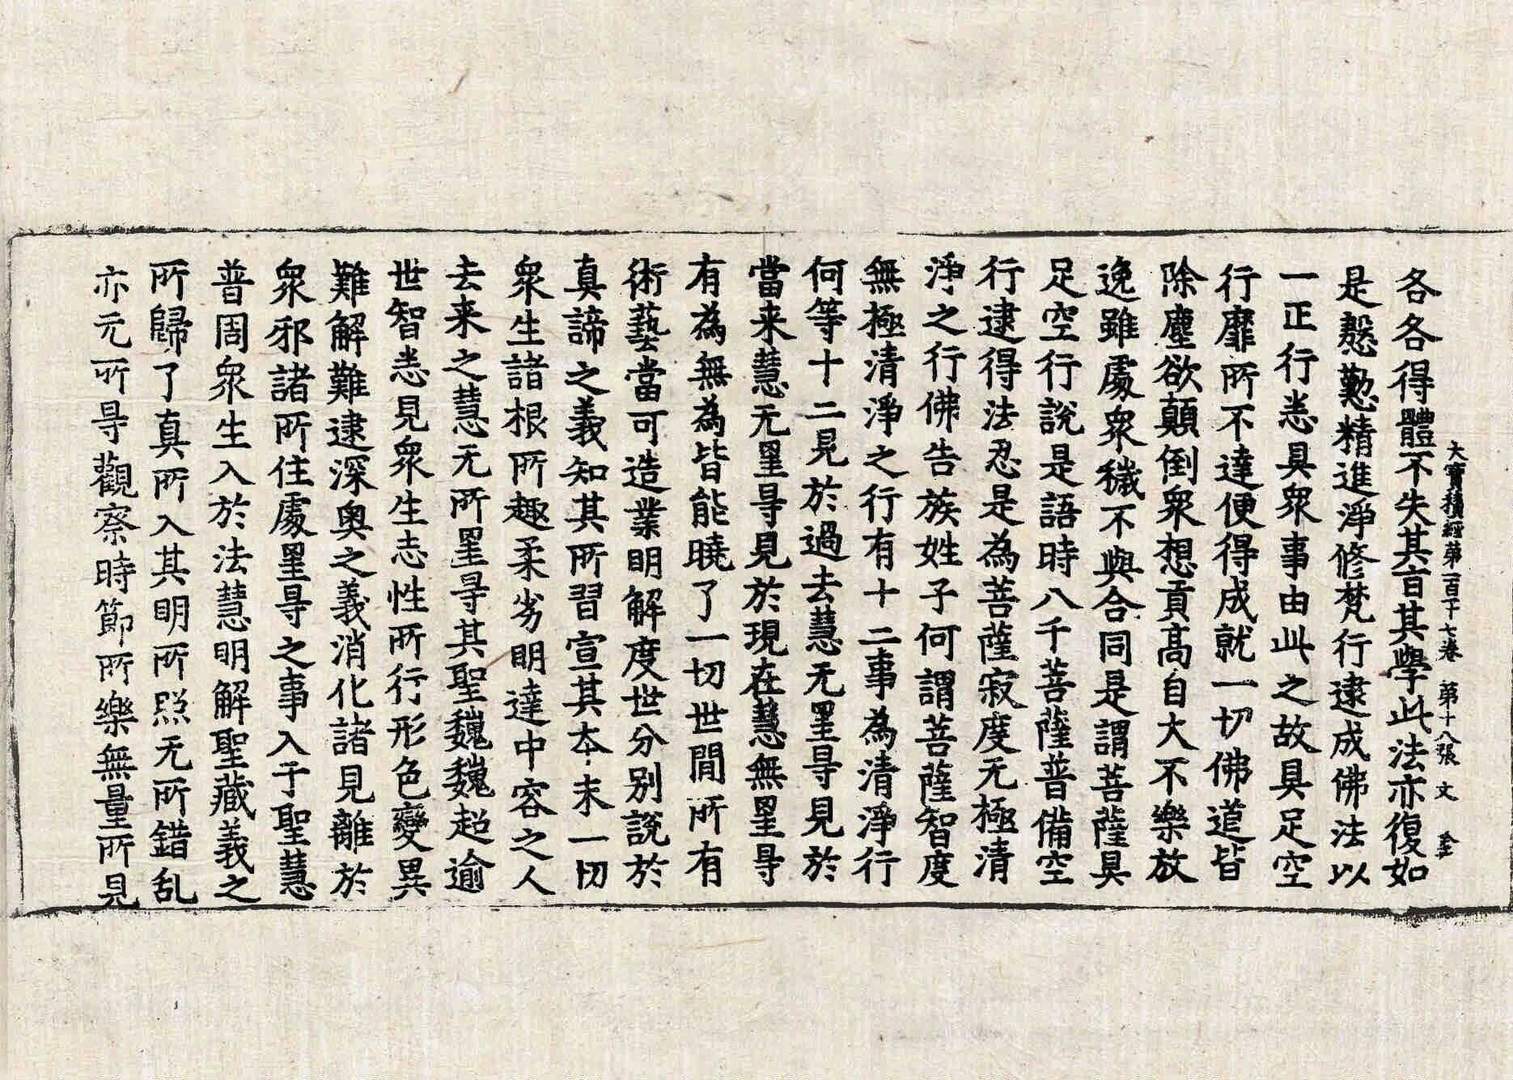 大寶積經第一百十七卷 第十八張 文
各各得體不失其首其學此法亦復如
是慇懃精進淨修梵行逮成佛法以
一正行悉具衆事由此之故具足空
行靡所不達便得成就一切佛道皆
除塵欲顛倒衆想貢高自大不樂放
逸雖處衆穢不與合同是謂菩薩具
足空行說是語時八千菩薩普備空
行逮得法忍是為菩薩寂度无極清
淨之行佛告族姓子何謂菩薩智度
無極清淨之行有十二事為清淨行
何等十二見於過去慧无罣㝵見於
當来慧无罣㝵見於現在慧無罣㝵
有為無為皆能曉了一切世間所有
術藝當可造業明解度世分別說於
真諦之義知其所習宣其夲末一切
衆生諸根所趣柔劣明達中容之人
去来之慧无所罣㝵其聖巍巍超逾
世智悉見衆生志性所行形色變異
難解難逮深奧之義消化諸見離於
衆邪諸所住處罣㝵之事入于聖慧
普周衆生入於法慧明解聖藏義之
所歸了真所入其明所照无所錯乱
亦无所㝵觀察時節所樂無量所見